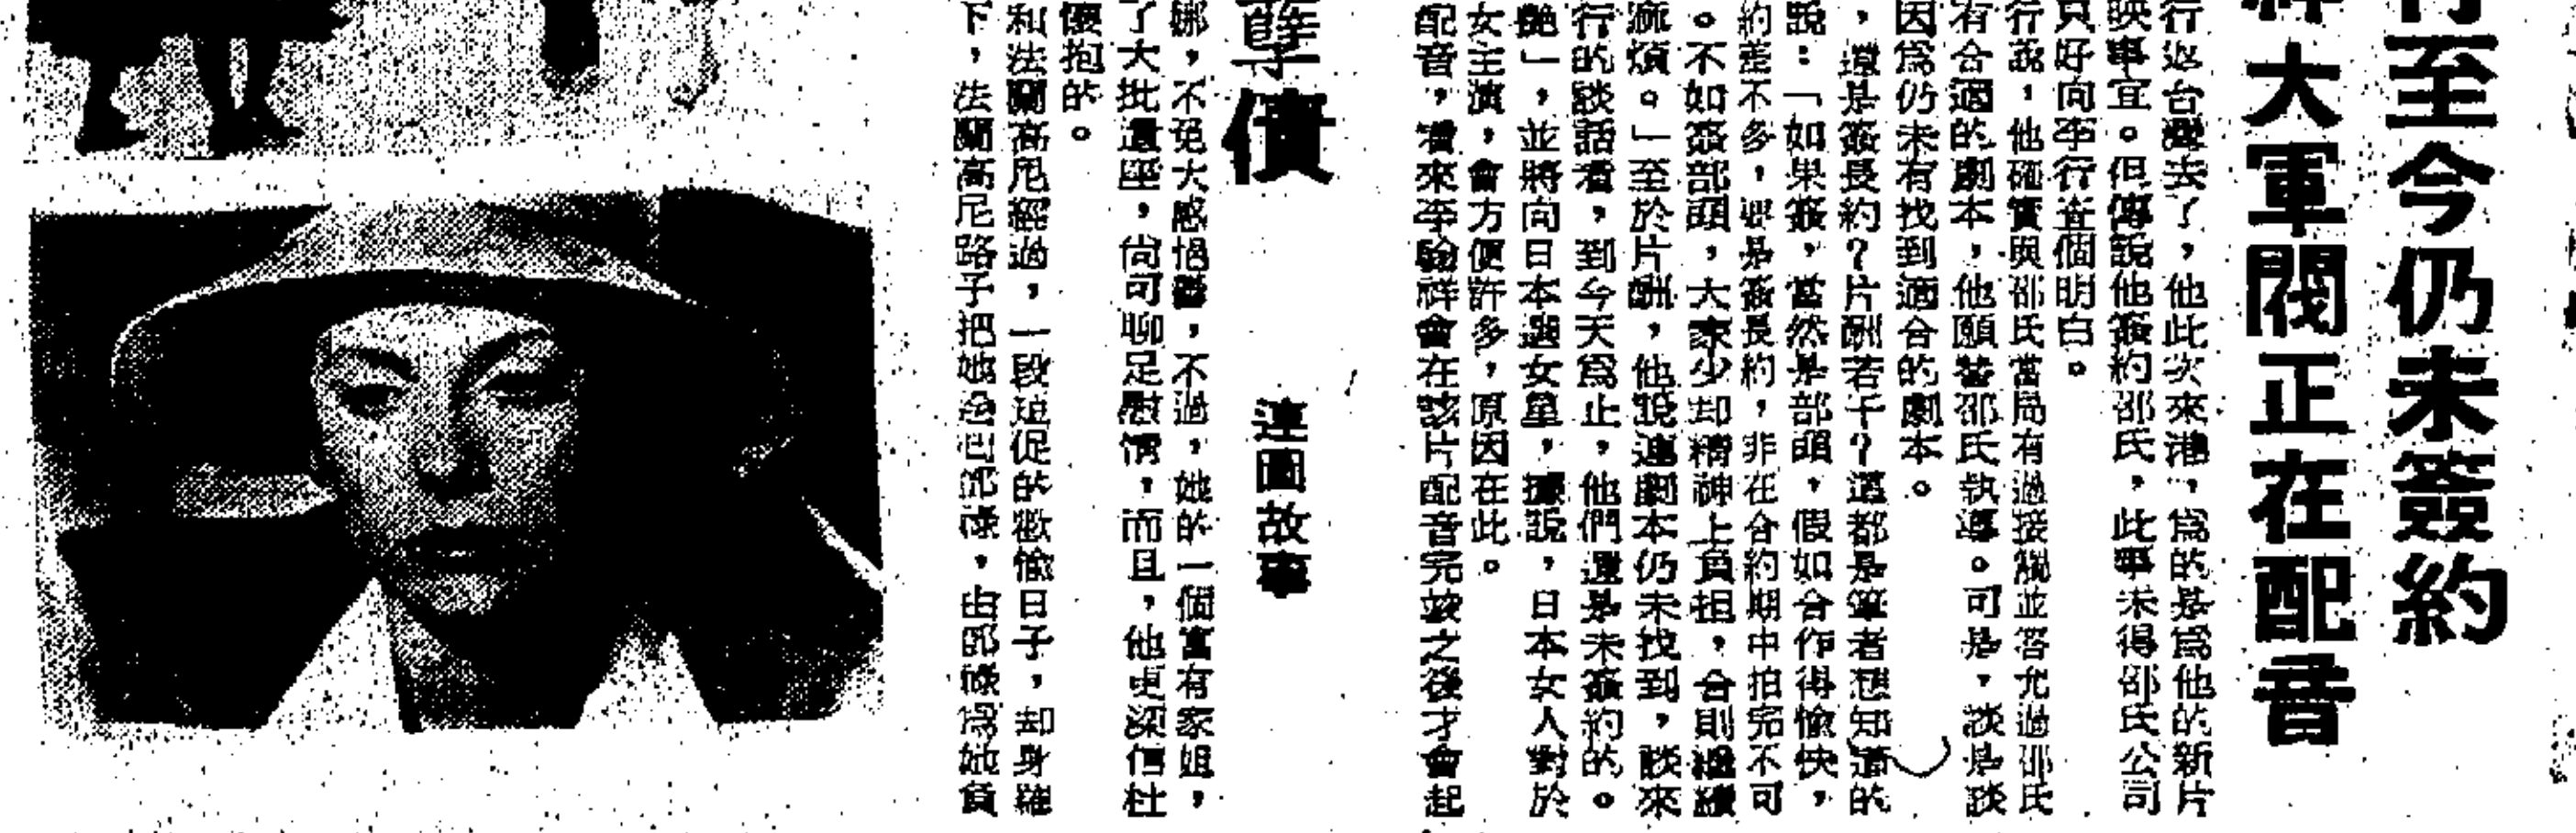 行至今仍未簽約
大軍閥正在配音
行返台灣去了，他此次來港，爲的是爲他的新片
映事宜。但傳說他簽約邵氏，此事未得邵氏公司
只好向李行查個明白。
行說，他確實與邵氏當局有過接觸並答允過邵氏
有合適的劇本，他願替邵氏執導。可是，談是談
因爲仍未有找到適合的劇本。
，還是簽長約？片酬若干？這都是筆者想知道的
說：「如果簽，當然是部頭，假如合作得愉快，
約差不多，要是簽長約，非在合約期中拍完不可
。不如簽部頭，大家少却精神上負担，合則繼續
麻煩。」至於片酬，他說連劇本仍未找到，談來
行的談話看，到今天爲止，他們還是未簽約的。
艷」，並將向日本選女星，據說，日本女人對於
女主演，會方便許多，原因在此。
配音，看來李翰祥會在該片配音完竣之後才會起
孽債
連圖故事
娜，不免大感尷尬，不過，她的一個富有家姐，
了大批遺座，尙可聊足慰情，而且，他更深信杜
懷抱的。
和法蘭高尼經過，一段短促的歡愉日子，却身罹
下，法蘭高尼路子把她